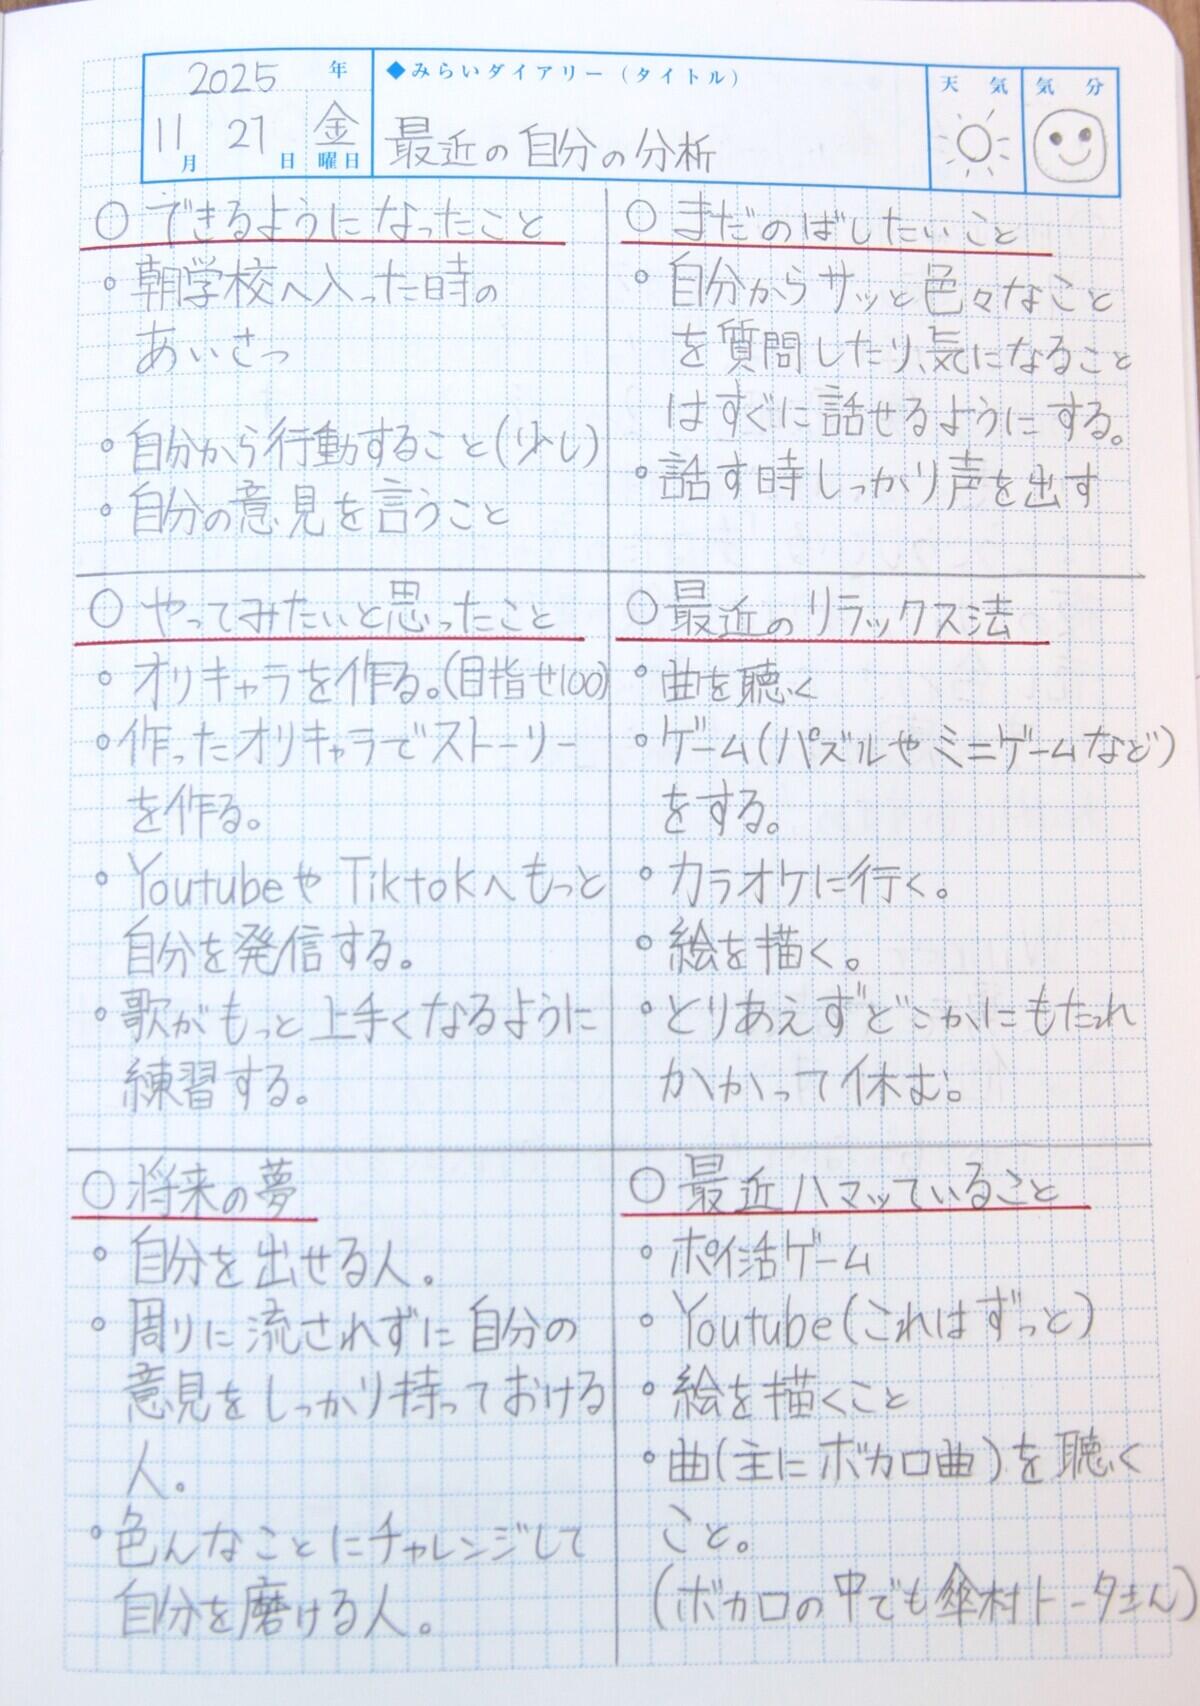 2025年
11月 21日 金曜日
◆みらいダイアリー(タイトル)
最近の自分の分析
天気 気分
○できるようになったこと
・朝学校へ入った時の
あいさつ
・自分から行動すること(少し)
・自分の意見を言うこと
○まだのばしたいこと
・自分からサッと色々なこと
を質問したり、気になること
はすぐに話せるようにする。
・話す時しっかり声を出す
○やってみたいと思ったこと
・オリキャラを作る。(目指せ100)
・作ったオリキャラでストーリー
を作る。
・YoutubeやTiktokへもっと
自分を発信する。
・歌がもっと上手くなるように
練習する。
○最近のリラックス法
・曲を聴く
・ゲーム(パズルやミニゲームなど)
をする。
・カラオケに行く。
・絵を描く。
・とりあえずどこかにもたれ
かかって休む。
○将来の夢
・自分を出せる人。
・周りに流されずに自分の
意見をしっかり持っておける
人。
・色んなことにチャレンジして
自分を磨ける人。
○最近ハマッていること
・ポイ活ゲーム
・Youtube(これはずっと)
・絵を描くこと
・曲(主にボカロ曲)を聴く
こと。
(ボカロの中でも傘村トータさん)